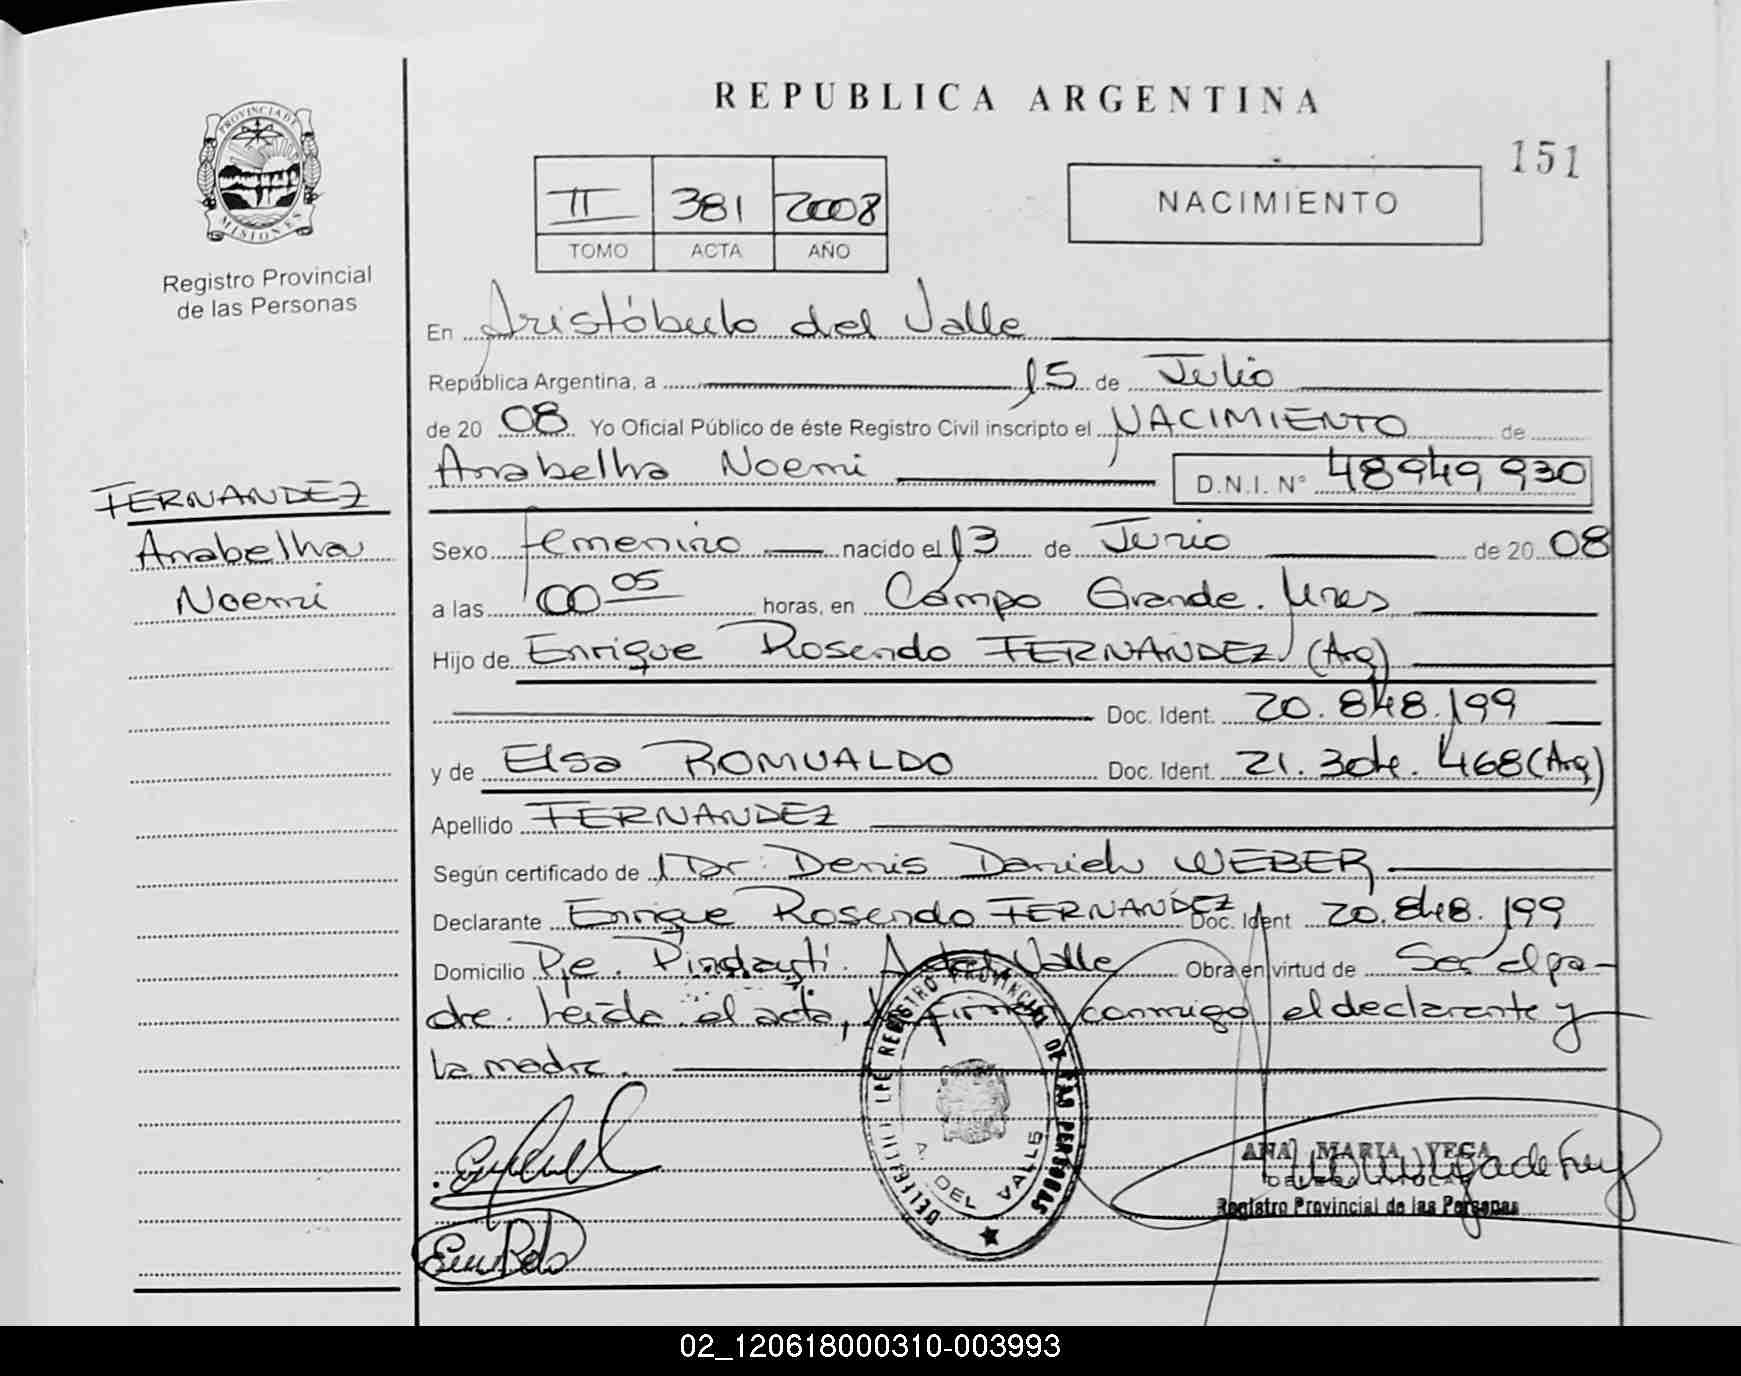 REPUBLICA ARGENTINA
151
PROVINCIA DE
MISIONES
Registro Provincial
de las Personas
II 381 2008
TOMO ACTA AÑO
NACIMIENTO
En Aristóbulo del Valle
República Argentina, a 15 de Julio
de 2008 Yo Oficial Público de éste Registro Civil inscripto el NACIMIENTO de
Anabelha Noemi D.N.I. N° 48949930
FERNANDEZ
Anabelha
Noemi
Sexo femenino nacido el 13 de Junio de 2008
a las 00 05 horas, en Campo Grande. Mnes
Hijo de Enrique Rosendo FERNANDEZ (Arg)
Doc. Ident. 20.848.199
y de Elsa ROMUALDO Doc. Ident. 21.304.468 (Arg)
Apellido FERNANDEZ
Según certificado de Dr. Denis Daniel WEBER
Declarante Enrique Rosendo FERNANDEZ Doc. Ident 20.848.199
Domicilio Pje. Pindayti. A. del Valle Obra en virtud de Ser el pa-
dre. Leída el acta, firman conmigo el declarante y
la madre.
REGISTRO PROVINCIAL DE LAS PERSONAS
DEL VALLE
ANA MARIA VEGA
Registro Provincial de las Personas
02_120618000310-003993